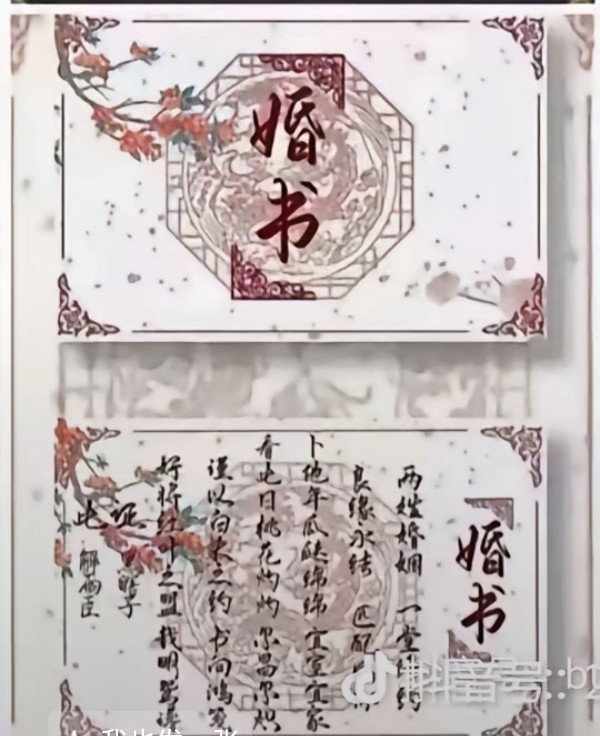 婚书
婚书
两姓婚姻 一堂约
良缘永结 匹配
卜他年瓜瓞绵绵 宜室宜家
看此日桃花灼灼 尔昌尔炽
谨以白头之约 书向鸿笺
好将红叶之盟 载明鸳谱
此证
瞎子
解雨臣
抖音号:
我也发一张